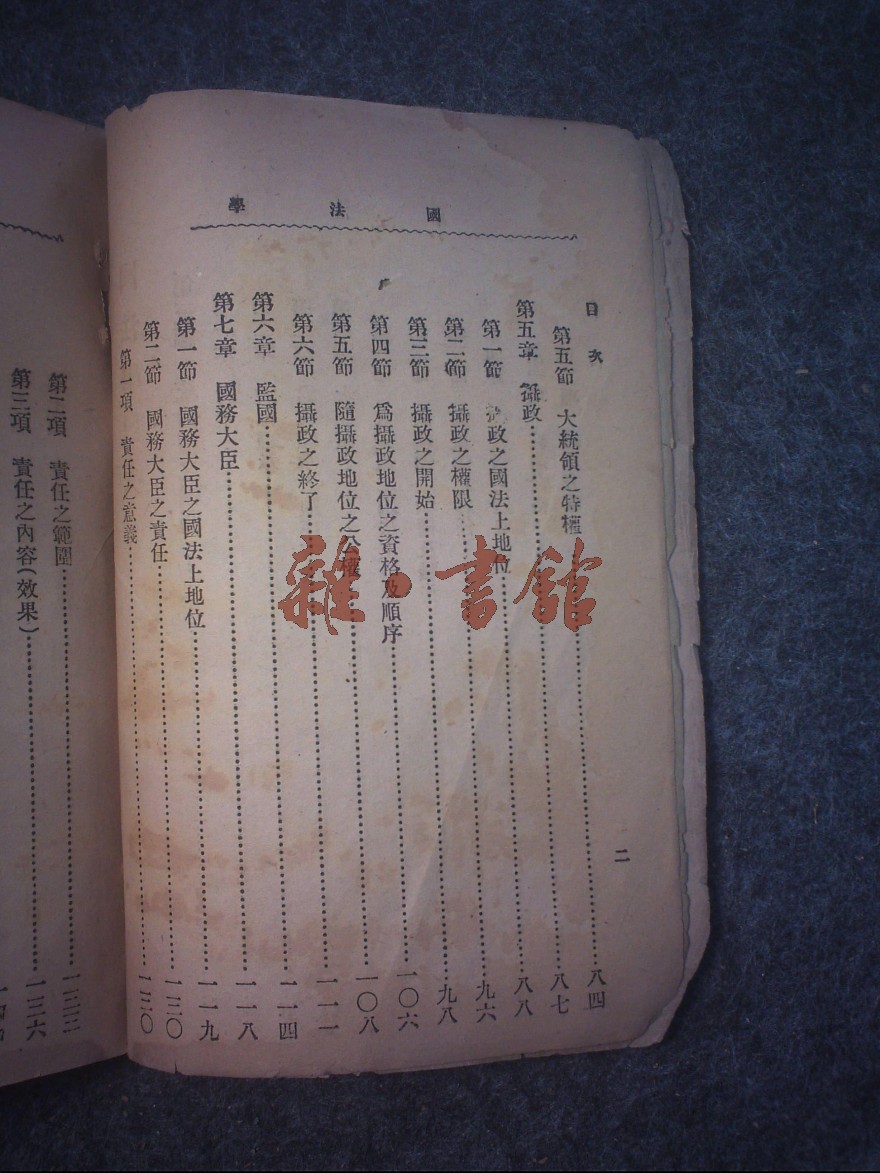 國法學
目次
二
第五節 大統領之特權……八四
第五章 攝政……八七
第一節 政之國法上地位……八八
第二節 攝政之權限……九六
第三節 攝政之開始……九八
第四節 爲攝政地位之資格及順序……一〇六
第五節 隨攝政地位之公權……一〇八
第六節 攝政之終了……一一一
第六章 監國……一一四
第七章 國務大臣……一一八
第一節 國務大臣之國法上地位……一一九
第二節 國務大臣之責任……一三〇
第一項 責任之意義……一三〇
第二項 責任之範圍……一三三
第三項 責任之內容(效果)……一三六
雜·書館